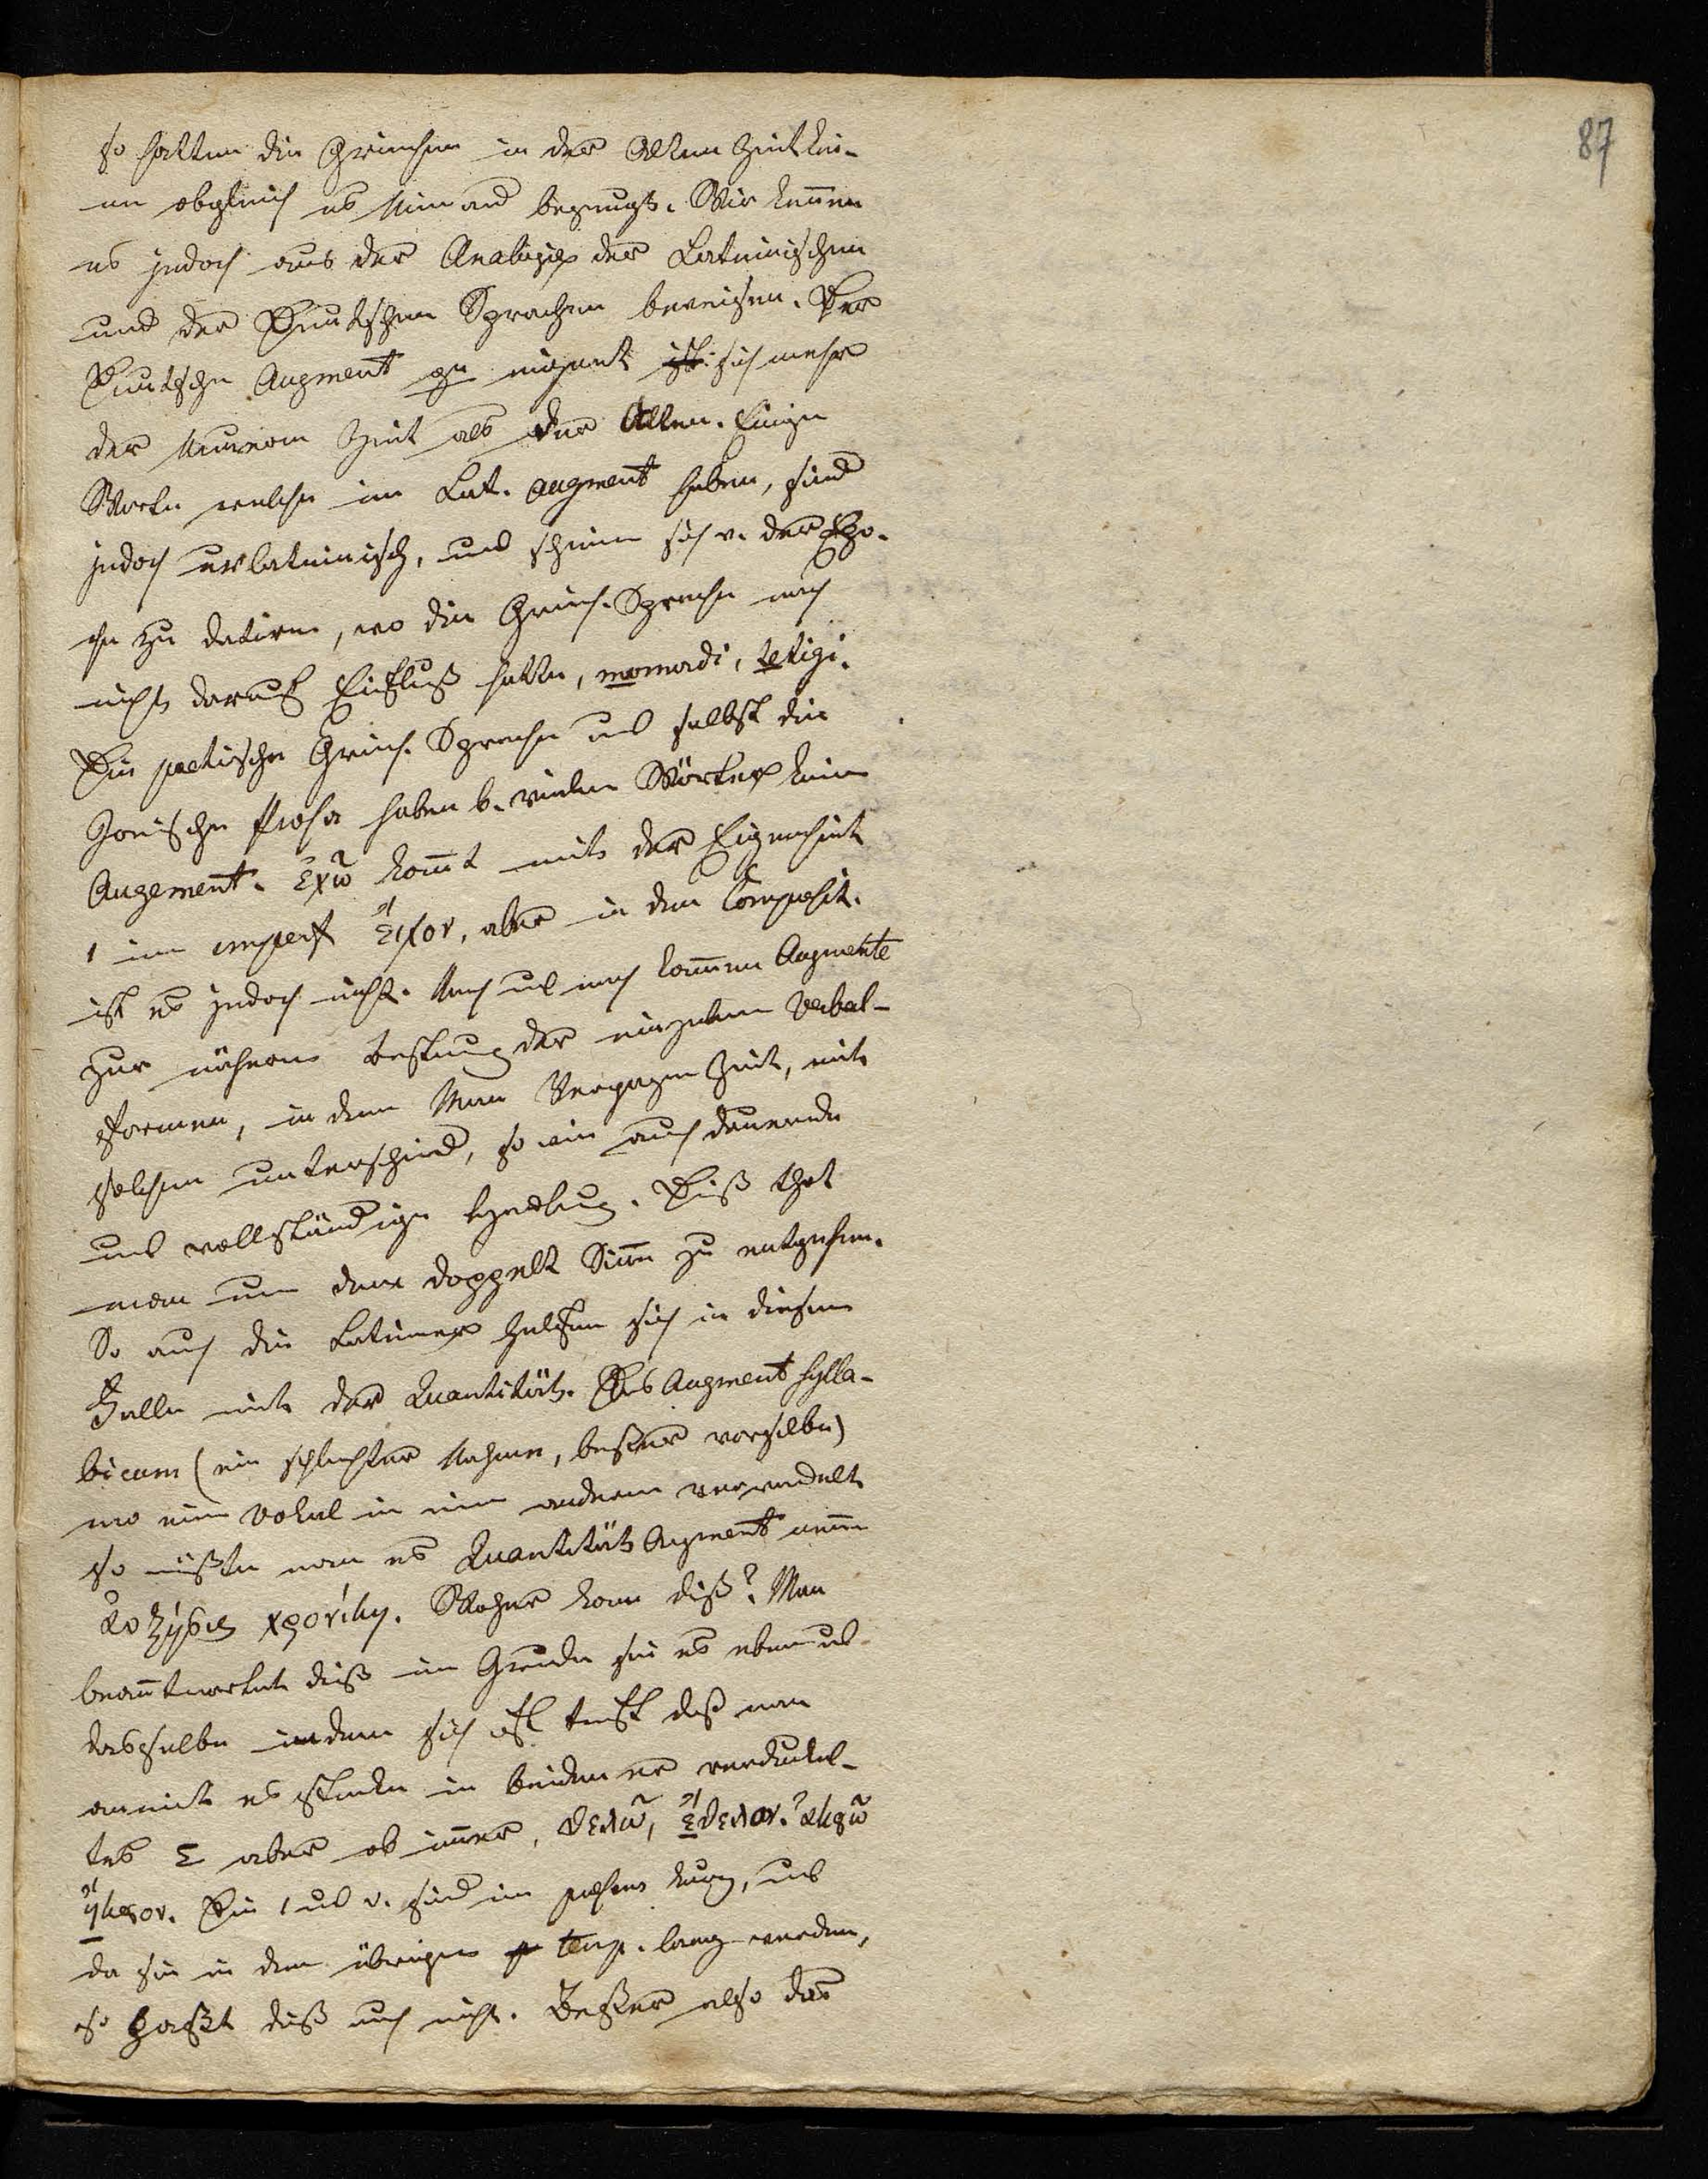 87
so hatten die Griechen in der Alten Zeit kei-
en obgleich es Niemand bezeugt. Wir können
es jedoch aus der Analogie der Lateinischen
und der Deutschen Sprachen beweisen. Der
Deutsche Augment ge eignet sich mehr
der Neueren Zeit als der Alten. Einige
Worte welche im Lat. Augment haben, sind
jedoch urlateinisch, und scheinen sich v. der Epo-
che zu datiren, wo die Griech. Sprache noch
nicht darauf Einfluß hatte, momordi, tetigi.
Die poetische Griech. Sprache und selbst die
Jonische Prosa haben b. vielen Wörter kein
Augement. ἐχῶ kommt mit der Eigenheit
ι im imperf εἶχον, aber in den Composit.
ist es jedoch nicht. Nach und nach kommen Augmente
zur näheren Bestimung der einzelnen Verbal-
formen, in dem Man Vergangen Zeit, mit
solchen unterschied, so wie auch dauernde
und vollständige Handlung. Diß that
man um dem doppelt Sinn zu entgehen.
So auch die Lateiner helfen sich in diesem
Falle mit der Quantität. Das Augment sylla-
bicum (ein schlechter Nahme, beßer vorsilbe)
wo ein Vokal in einen anderen verwandelt
so müßte man es Quantitäts Augment nenn
αὐξησις χρονίκη. Woher kam diß? Man
beantwortet diß im Grunde sei es eben und
dasselbe indem sich oft trift daß man
es stecke in beiden ver-
tes Ε aber ob immer, θελῶ, ἔθελον. ἀκοῶ
ἤκουον. Die ι und υ. sind im praesens kurz, und
da sie in den übrigen temp. lang werden,
so paßt diß auch nicht. Beßer also das